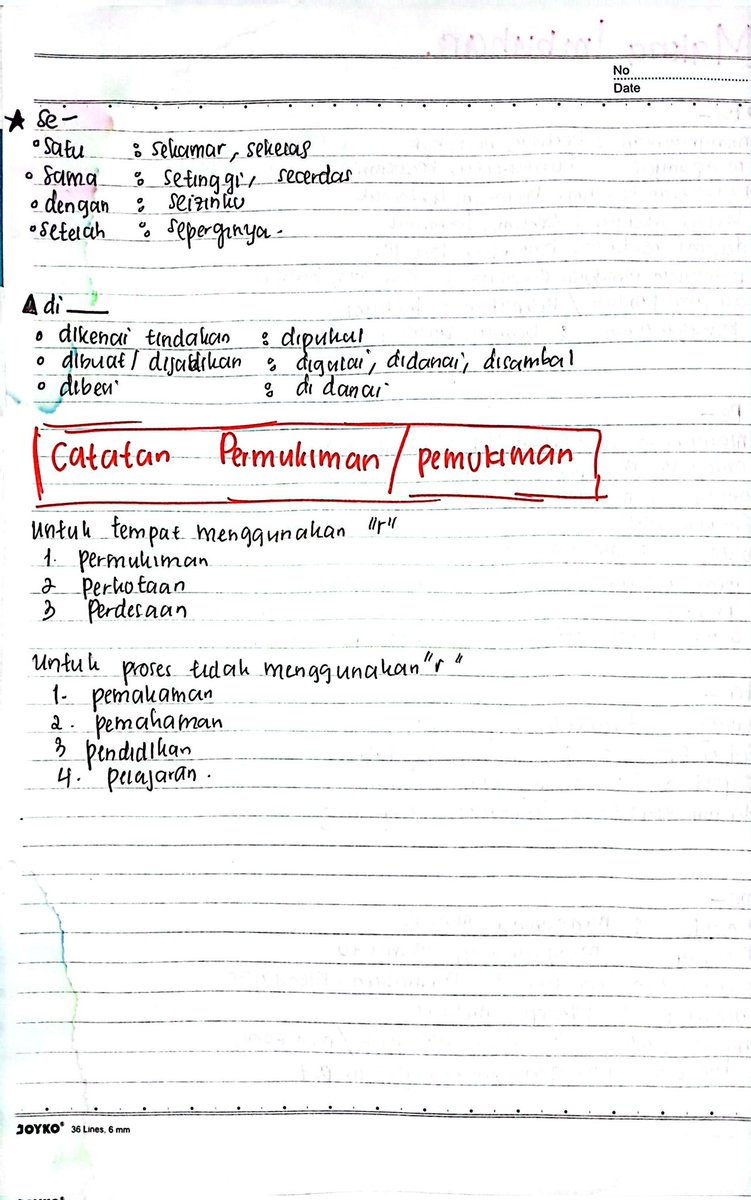 No
Date
★ Se-
° Satu : sekamar, sekelas
° Sama : setinggi, secerdas
° dengan : seizinku
° setelah : seperginya.
di
° dikenai tindakan : dipukul
° dibuat / dijadikan : digulai, didanai, disambal
° diberi : di danai
Catatan Permukiman / pemukiman
Untuk tempat menggunakan "r"
1. permukiman
2 perkotaan
3 Perdesaan
Untuk proses tidak menggunakan "r"
1. pemakaman
2. pemahaman
3 pendidikan
4. pelajaran.
JOYKO® 36 Lines, 6 mm